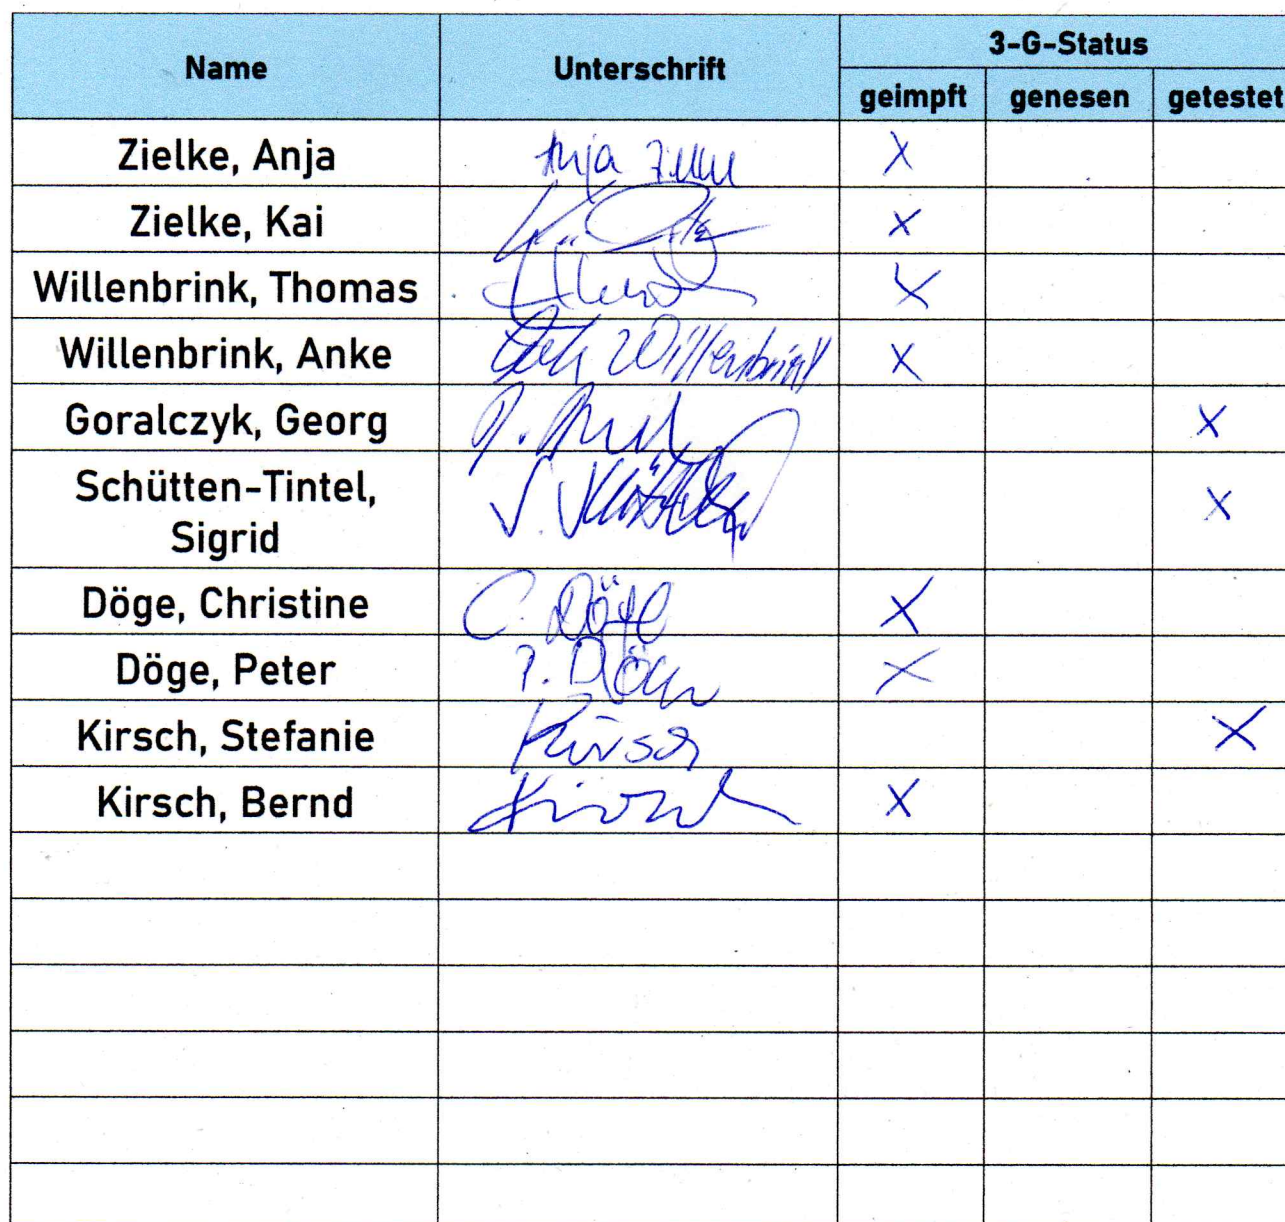 Name Unterschrift 3-G-Status
geimpft genesen getestet
Zielke, Anja Anja X
Zielke, Kai X
Willenbrink, Thomas X
Willenbrink, Anke Willenbrink X
Goralczyk, Georg X
Schütten-Tintel,
Sigrid X
Döge, Christine C. Döge X
Döge, Peter P. Döge X
Kirsch, Stefanie Kirsch X
Kirsch, Bernd Kirsch X